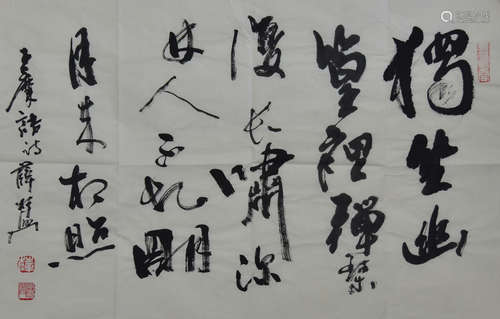 獨坐幽
篁裡彈琴
復长嘯深
林人不知明
月来相照
王摩詰诗 薛